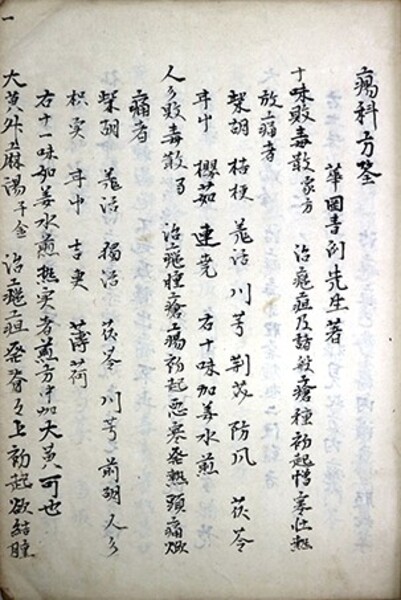 瘍科方筌
華岡青洲先生著
十味敗毒散家方 治癰疽及諸般瘡腫初起憎寒壮熱
焮痛者
柴胡 桔梗 羌活 川芎 荊芥 防風 茯苓
甘屮 櫻茹 連壳 右十味加姜水煎
人参敗毒散局 治癰腫瘡瘍初起悪寒発熱頭痛焮
痛者
柴胡 羌活 獨活 茯苓 川芎 前胡 人参
枳実 甘屮 吉更 薄荷
右十一味加姜水煎熱実者煎方中加大黄可也
大黄升麻湯千金 治癰疽発背 上初起欲結腫
一